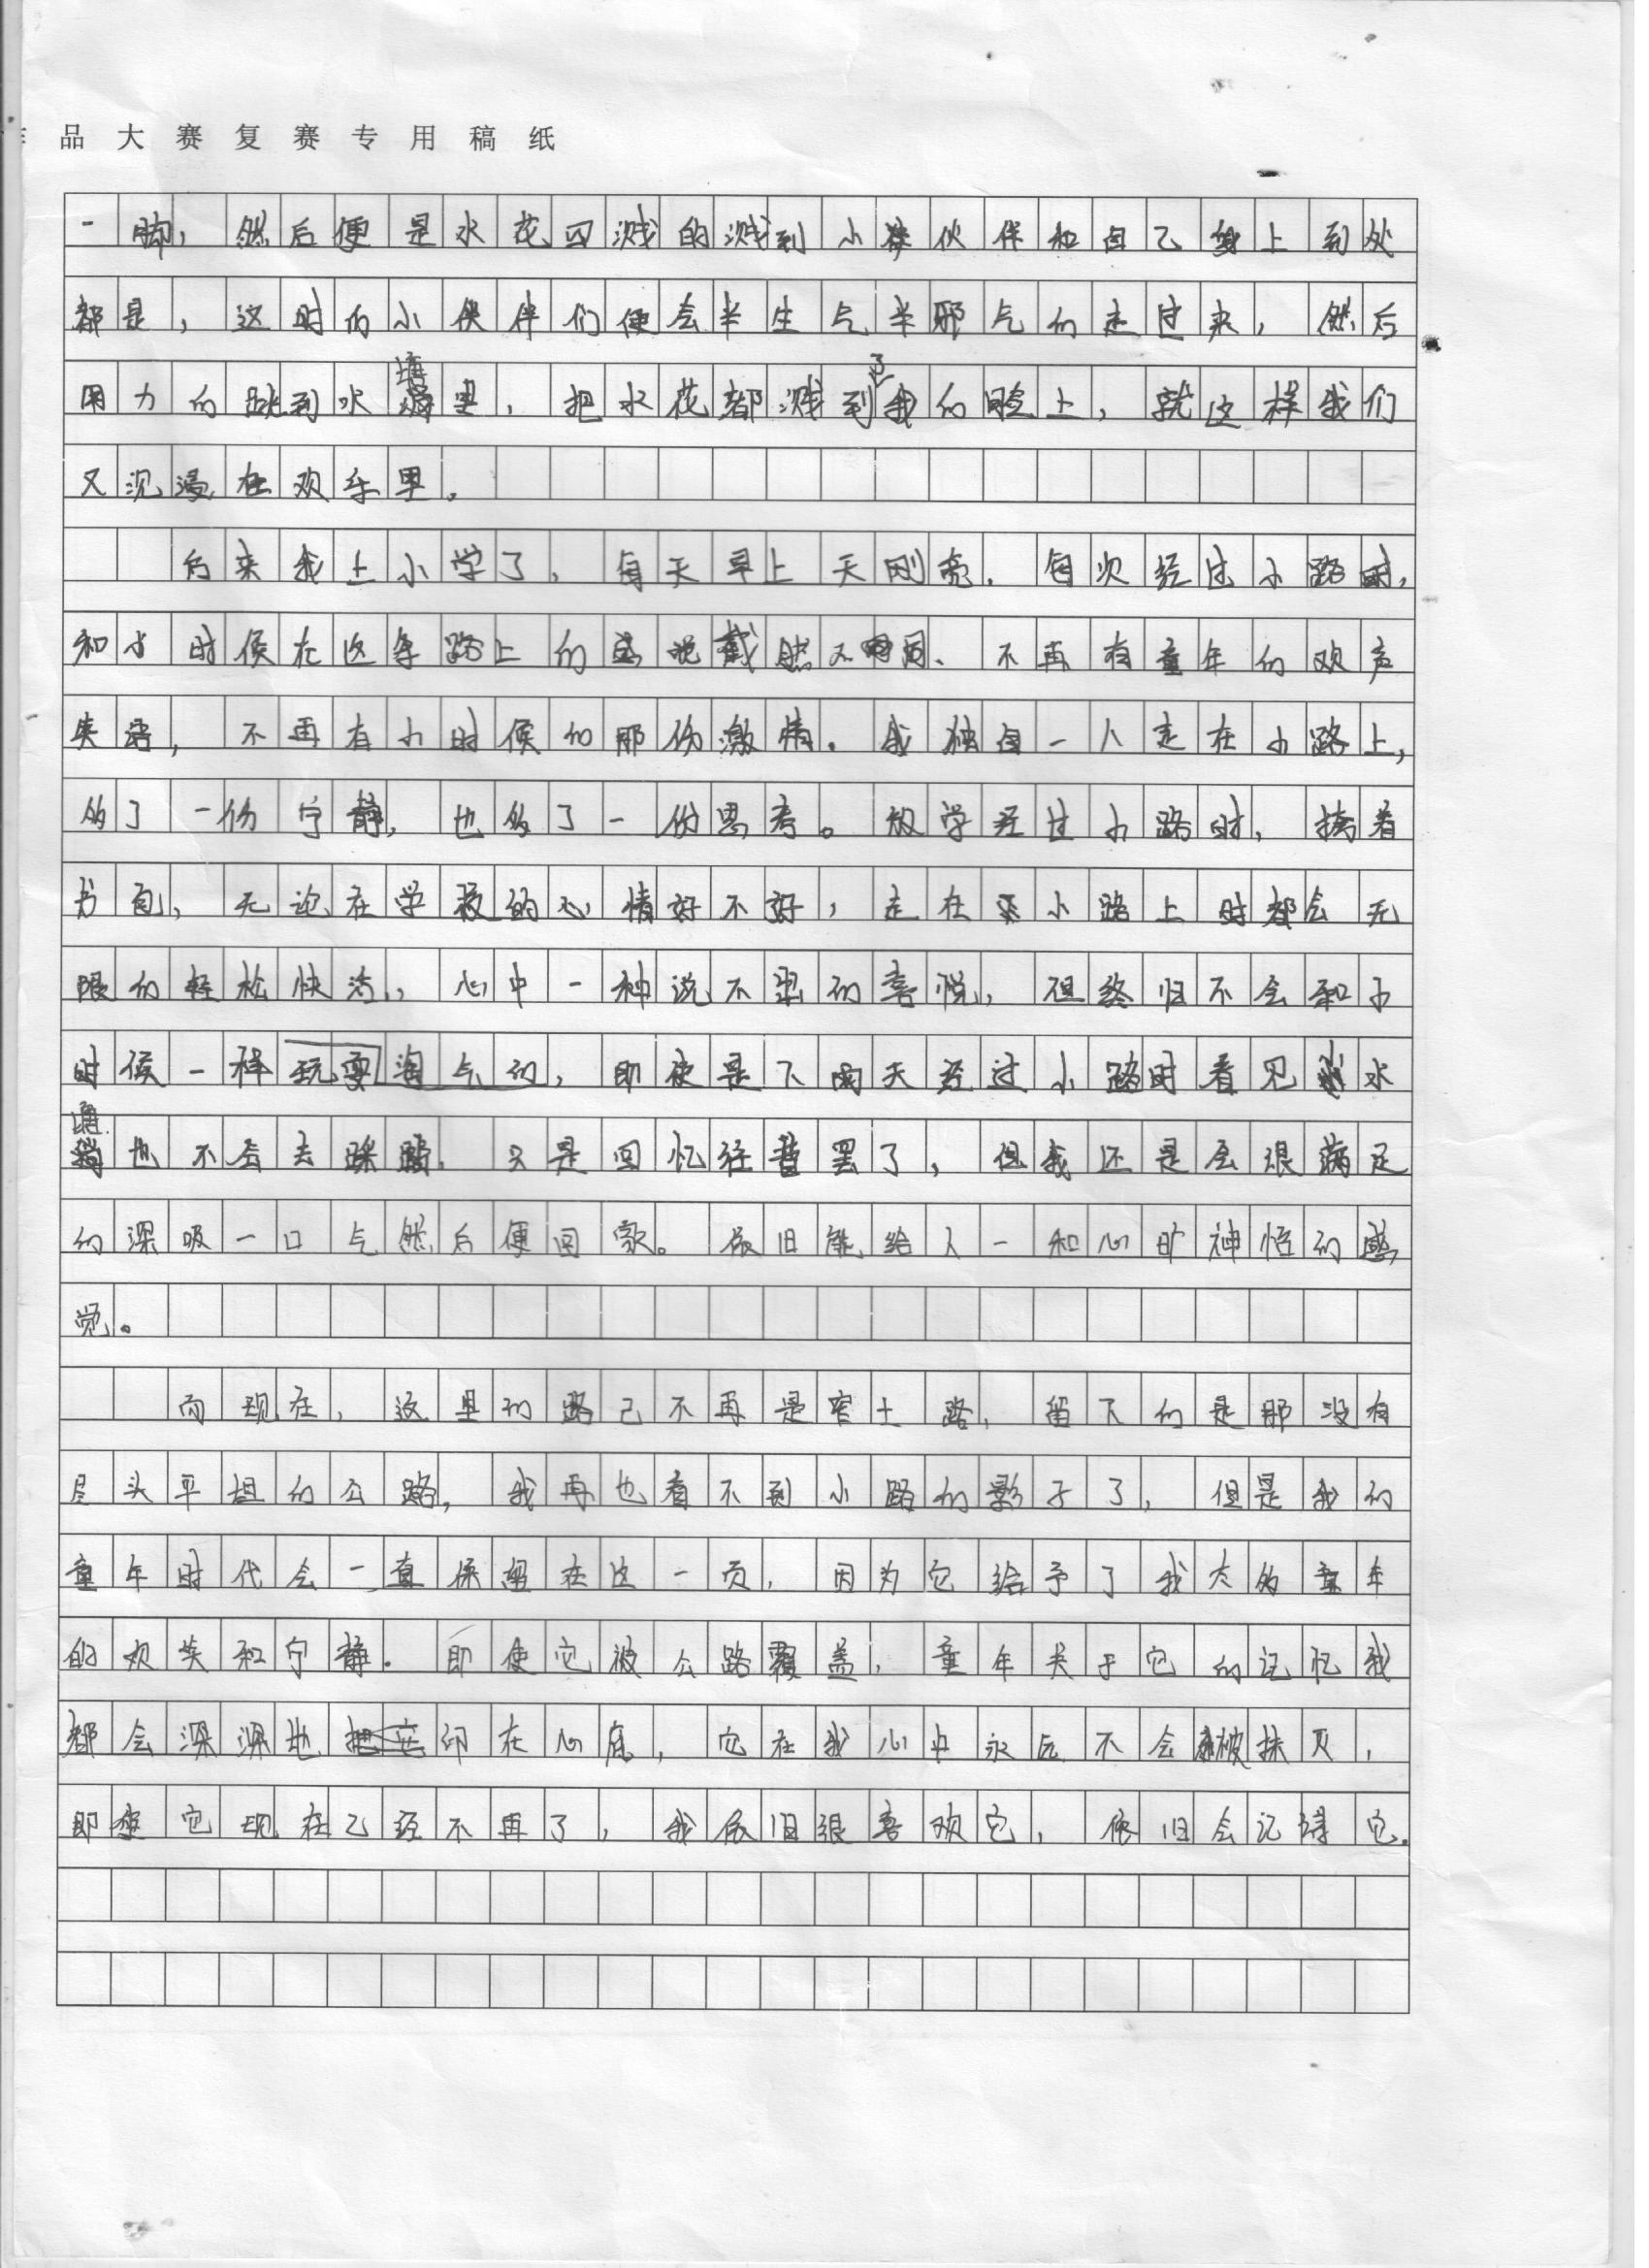 品大赛复赛专用稿纸
一脚，然后便是水花四溅的溅到小伙伴和自己身上到处
都是，这时的小伙伴们便会半生气半邪气的走过来，然后
用力的跳到水塘里，把水花都溅到了我的脸上，就这样我们
又沉浸在欢乐里。
后来我上小学了，每天早上天刚亮，每次经过小路时，
和小时候在这条路上的感觉截然不同、不再有童年的欢声
笑语，不再有小时候的那份激情。我独自一人走在小路上，
多了一份宁静，也多了一份思考。放学经过小路时，揹着
书包，无论在学校的心情好不好，走在小路上时都会无
限的轻松快活，心中一种说不出的喜悦，但终归不会和小
时候一样玩耍淘气的，即使是下雨天经过小路时看见水
塘也不会去踩踏，只是回忆往昔罢了，但我还是会很满足
的深吸一口气然后便回家。依旧能给人一种心旷神怡的感
觉。
而现在，这里的路已不再是窄土路，留下的是那没有
尽头平坦的公路，我再也看不到小路的影子了，但是我的
童年时代会一直保留在这一页，因为它给予了我太多童年
的欢笑和宁静。即使它被公路覆盖，童年关于它的记忆我
都会深深地把它印在心底，它在我心中永远不会被抹灭，
即使它现在已经不再了，我依旧很喜欢它，依旧会记得它。